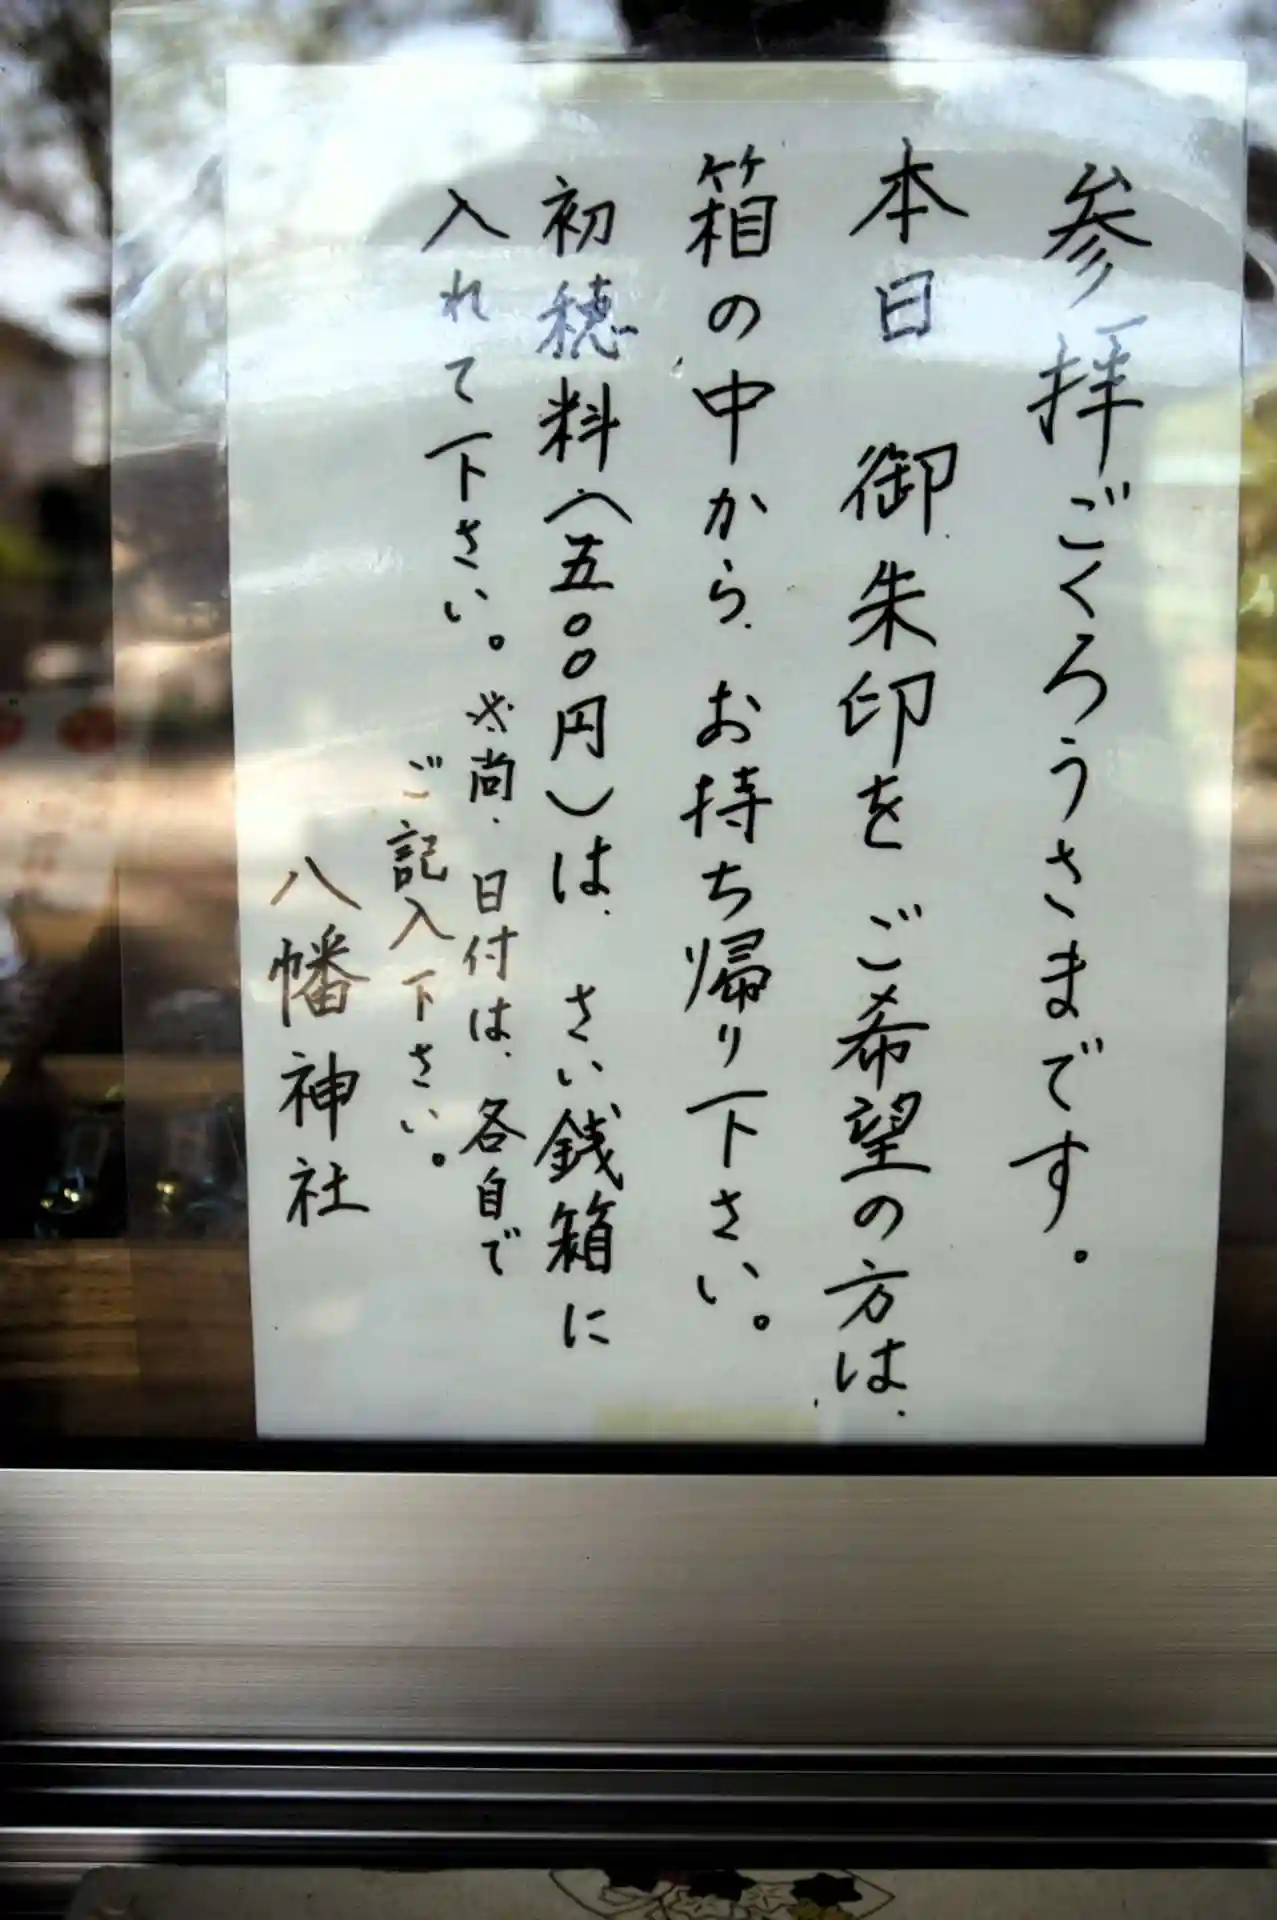 参拝ごくろうさまです。
本日 御朱印を ご希望の方は、
箱の中から、お持ち帰り下さい。
初穂料(五〇〇円)は、さい銭箱に
入れて下さい。※尚、日付は、各自で
ご記入下さい。
八幡神社